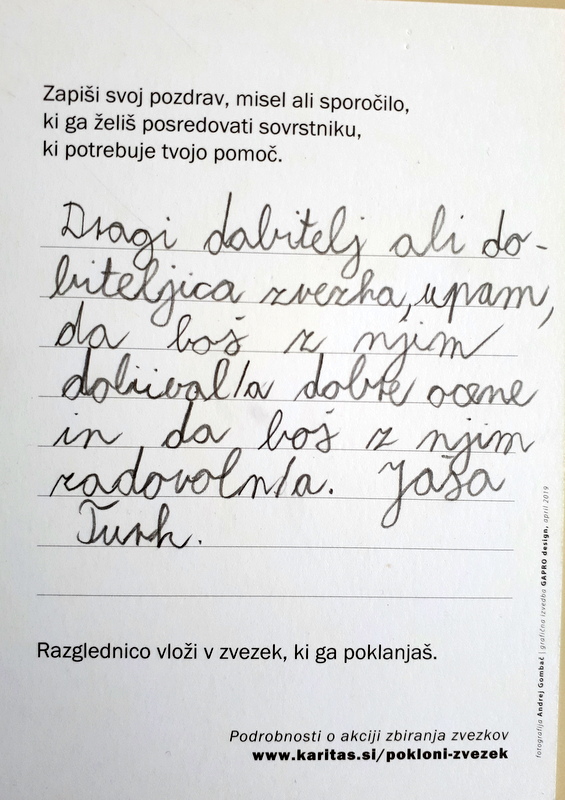 Zapiši svoj pozdrav, misel ali sporočilo,
ki ga želiš posredovati sovrstniku,
ki potrebuje tvojo pomoč.
Dragi dabitelj ali do-
biteljica zvezka, upam,
da boš z njim
dobival/a dobre ocene
in da boš z njim
zadovoln/a. Jaša
Turk.
Razglednico vloži v zvezek, ki ga poklanjaš.
Podrobnosti o akciji zbiranja zvezkov
www.karitas.si/pokloni-zvezek
fotografija Andrej Gombač | grafična izvedba GAPRO design, april 2019